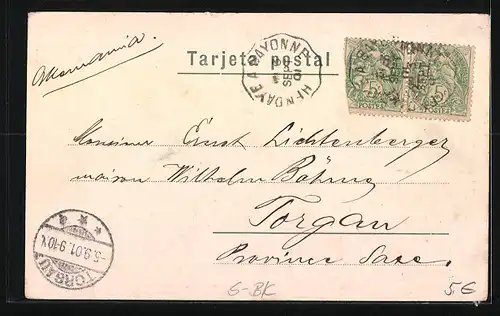 Allemania.
Tarjeta postal
HENDAYE A BAYONNE
SEPT
01
5
POSTES
5
POSTES
Monsieur Ernst Lichtenberger
maison Wilhelm Böhme
Torgau
Province Saxe.
TORGAU
5.9.01.9-10V.
G-BK
5€